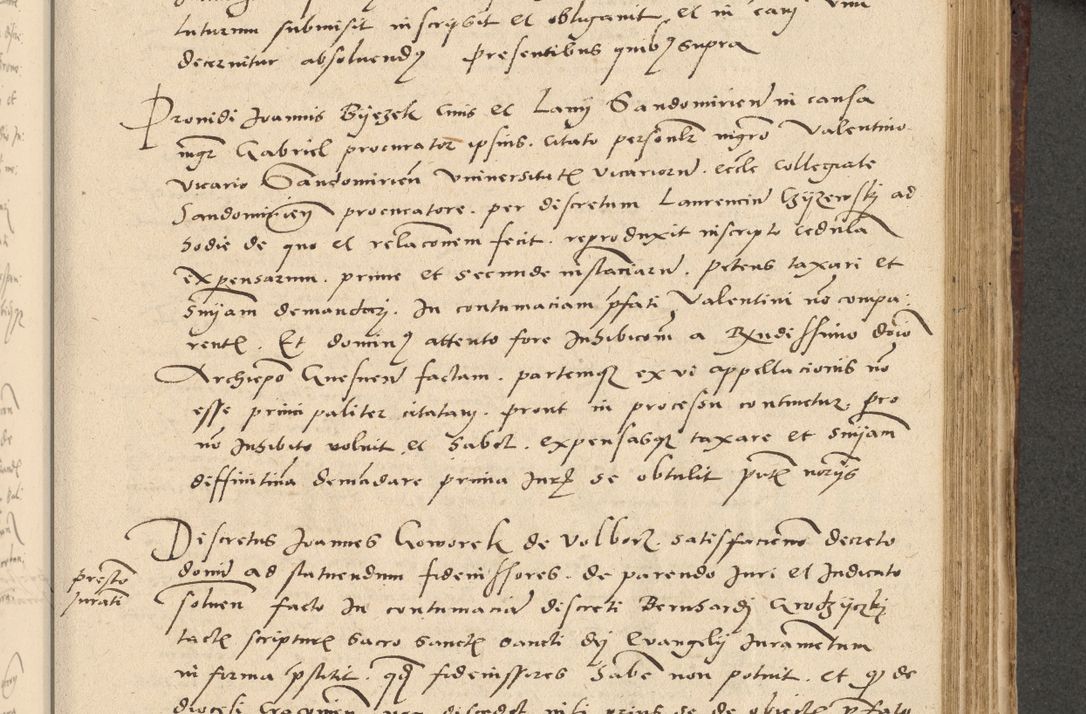 tuturum submisit inscripsit et obligavit et in eam
decernitur absolvendū presentibus quibus supra
Providi Joannis Byezek Civis et Lanij Sandomirien in causa
mgr Gabriel procurator ipsius citato personlr mgro Valentino
vicario Sandomirien vniversitatis vicariorum eccle Collegiate
Sandomirien procuratore per discretum Laurencium Czyzewskj ad
hodie de quo et relaconem fecit reproduxit inscripto cedula
expensarum prime et secunde instanciarum petens taxari et
smjam demandarj In contumaciam pfati Valentini no compa
rentis Et dominus attento fore Inhibicom a Rxndissimo dono
Archiepo Gnesnen factam partemq ex vi appellacionis no
esse principaliter citatam prout in processu continetur pro
no Inhibito voluit et habet expensasq taxare et smjam
diffinitiua demadare prima Jur se obtulit putis norijs
Discretus Joannes Goworek de Volborz satisfaciendo decreto
domini ad statuendum fideiussores de parendo Juri et Judicato
solven facto In contumaciam discreti Bernhardj Grodzyczkj
presto
Jurati
tactis scripturis sacro sanctis sancti dej Evangelij Juramentum
in forma pstitit qd fideiussores habere non potuit et q de
diocesi Cracovien non discedet nisi prius se de obiectis pfato